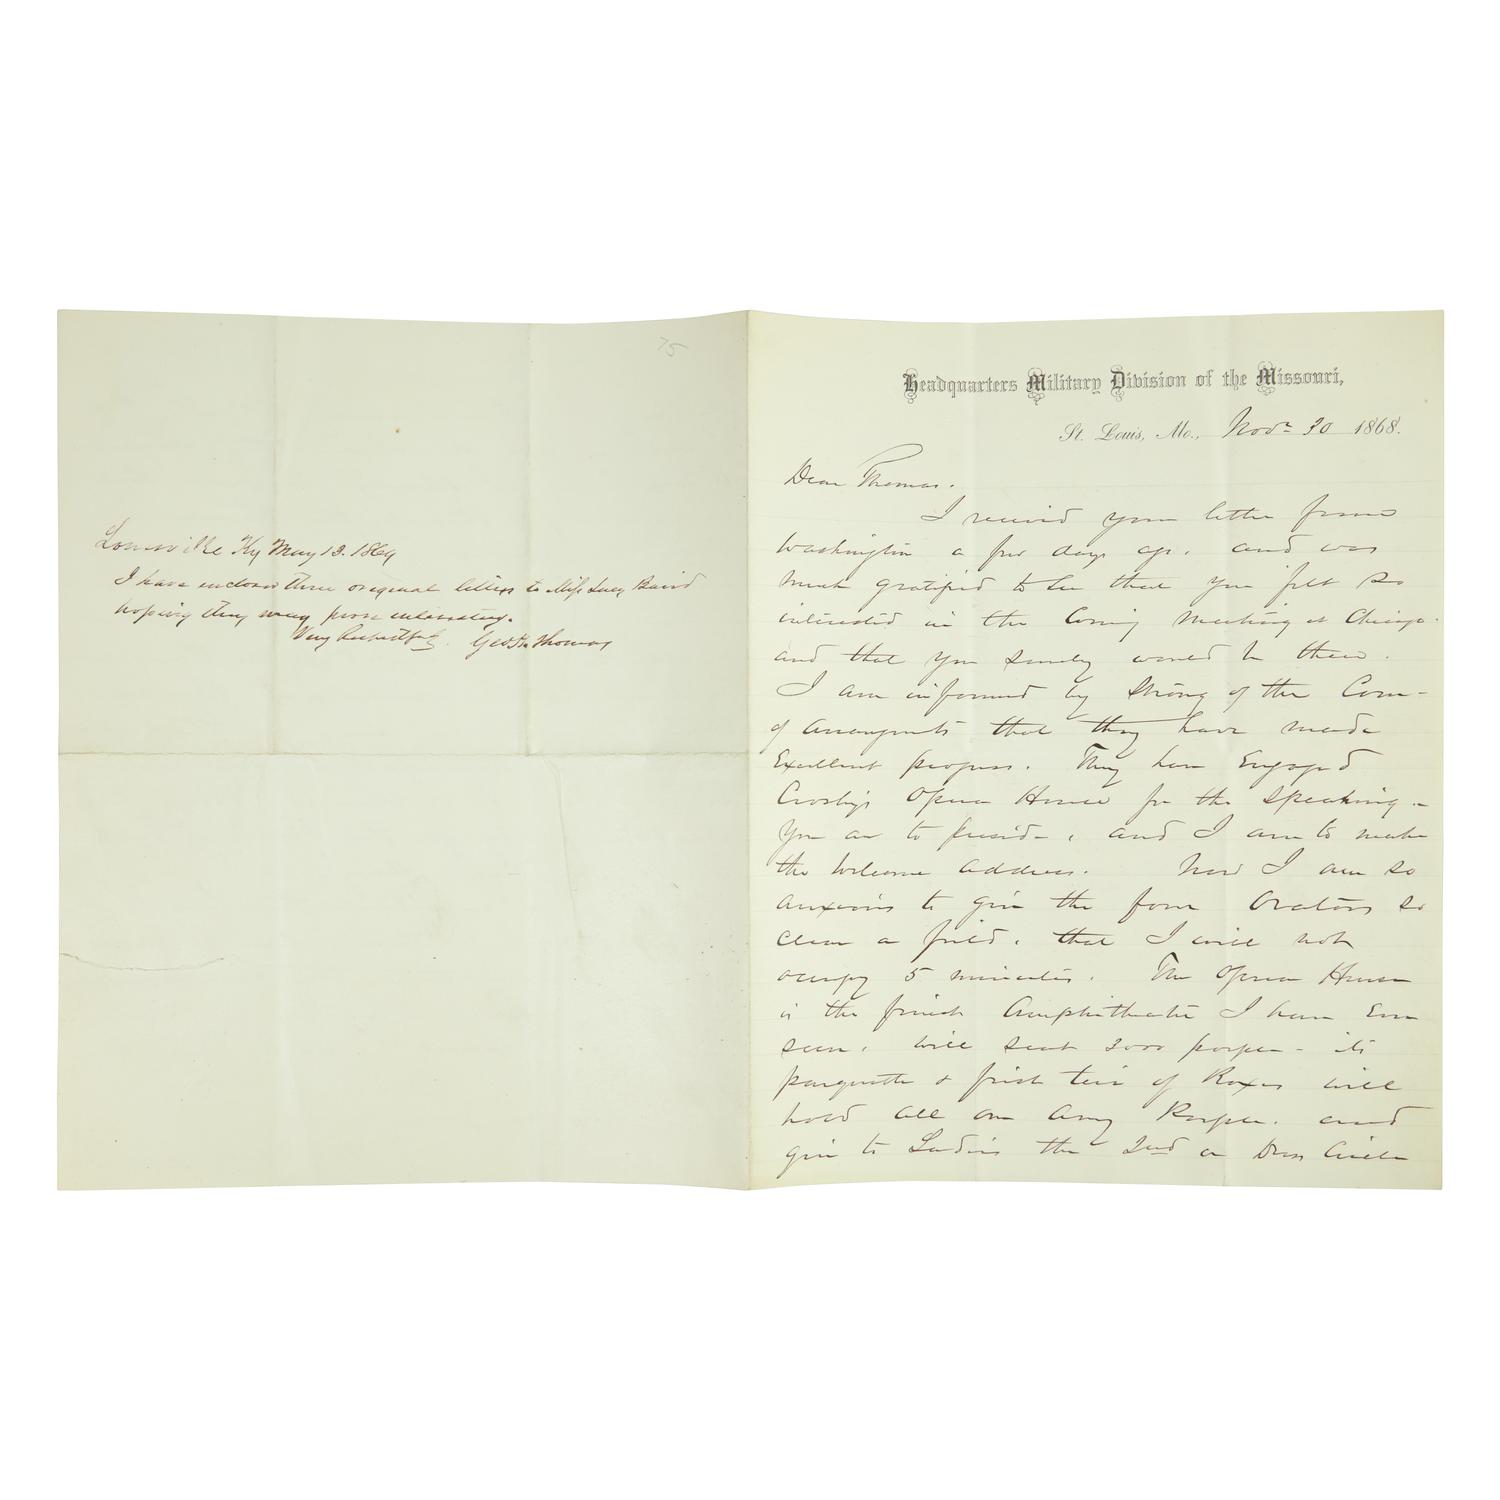 75
Louisville Ky May 13. 1869
I have enclosed three original letters to Miss Lucy Baird
hoping they may prove interesting.
Very Respectfully Geo H. Thomas
Headquarters Military Division of the Missouri,
St. Louis, Mo., Novr 30 1868.
Dear Thomas.
I received your letter from
Washington a few days ago, and was
much gratified to see that you felt so
interested in the Coming Meeting at Chicago.
and that you surely would be there.
I am informed by Strong of the Com-
of Arrangements that they have made
Excellent progress. They have Engaged
Crosby's Opera House for the Speaking -
You are to preside, and I am to make
the Welcome address. Now I am so
anxious to give the four Orators so
clear a field, that I will not
occupy 5 minutes. The Opera House
is the finest Amphitheatre I have Ever
seen, will seat 3000 people - its
parquette & first tier of Boxes will
hold all our Army People, and
give to Ladies the 2nd or Dress Circle